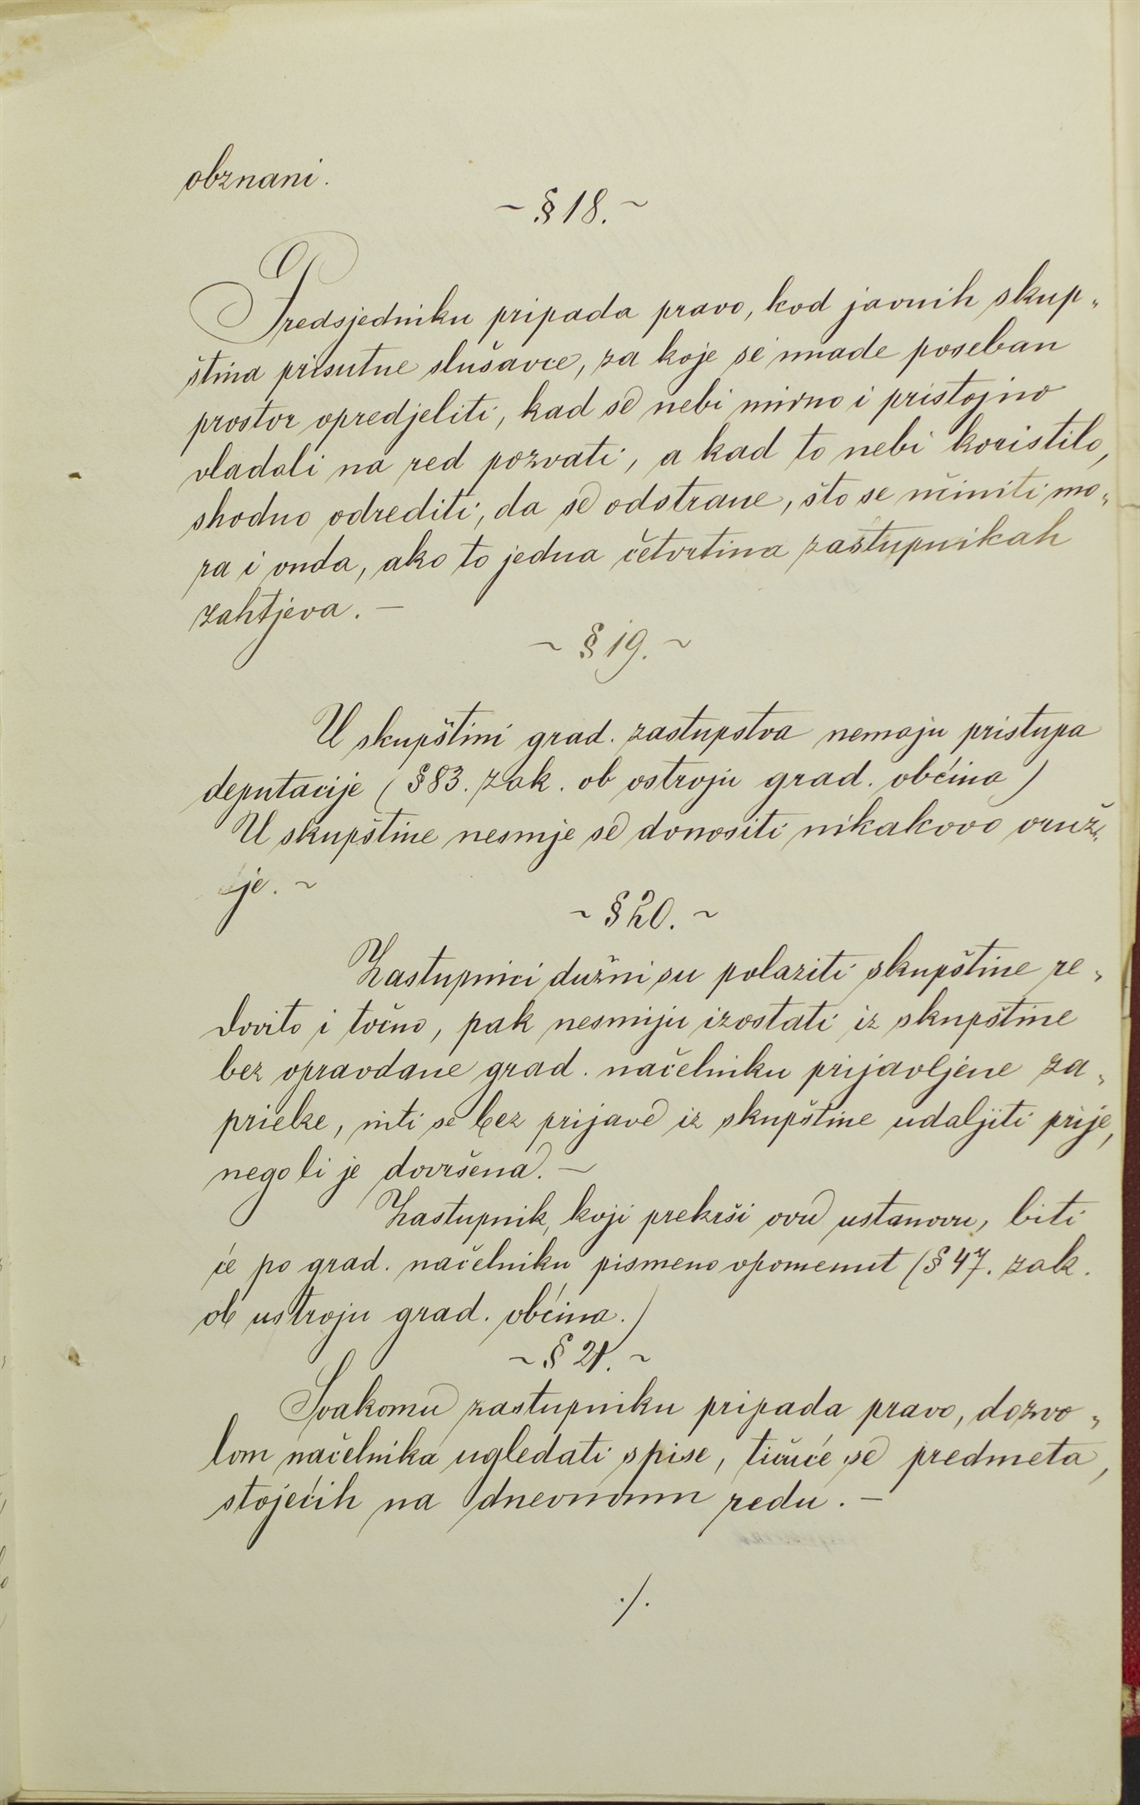 obznani.
~ § 18. ~
Predsjedniku pripada pravo, kod javnih skup„
ština prisutne slušavce, za koje se imade poseban
prostor opredjeliti, kad se nebi mirno i pristojno
vladali na red pozvati, a kad to nebi koristilo,
shodno odrediti, da se odstrane, što se učiniti mo„
ra i onda, ako to jedna četvrtina zastupnikah
zahtjeva. —
~ § 19. ~
U skupštini grad. zastupstva nemaju pristupa
deputacije (§ 83. zak. ob ostroju grad. občina)
U skupštine nesmje se donositi nikakovo oruž„
je. ~
~ § 20. ~
Zastupnici dužni su polaziti skupštine re„
dovito i točno, pak nesmiju izostati iz skupštine
bez opravdane grad. načelniku prijavljene za„
prieke, niti se bez prijave iz skupštine udaljiti prije,
nego li je dovršena. —
Zastupnik, koji prekrši ovu ustanovu, biti
će po grad. načelniku pismeno opomenut (§ 47. zak.
ob ustroju grad. občina.)
~ § 21. ~
Svakomu zastupniku pripada pravo, dozvo„
lom načelnika ugledati spise, tičuće se predmeta,
stojećih na dnevnom redu. —
./.